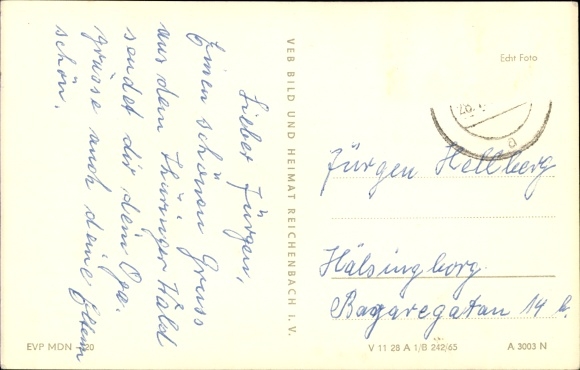 Lieber Jürgen,
Einen schönen Gruss
aus dem Thüringer Wald
sendet dir dein Opa.
grüsse auch deine Eltern
schön.
VEB BILD UND HEIMAT REICHENBACH i. V.
Echt Foto
28.
a
Jürgen Hellberg
Hälsingborg
Bagaregatan 14 b.
EVP MDN -,20
V 11 28 A 1/B 242/65
A 3003 N